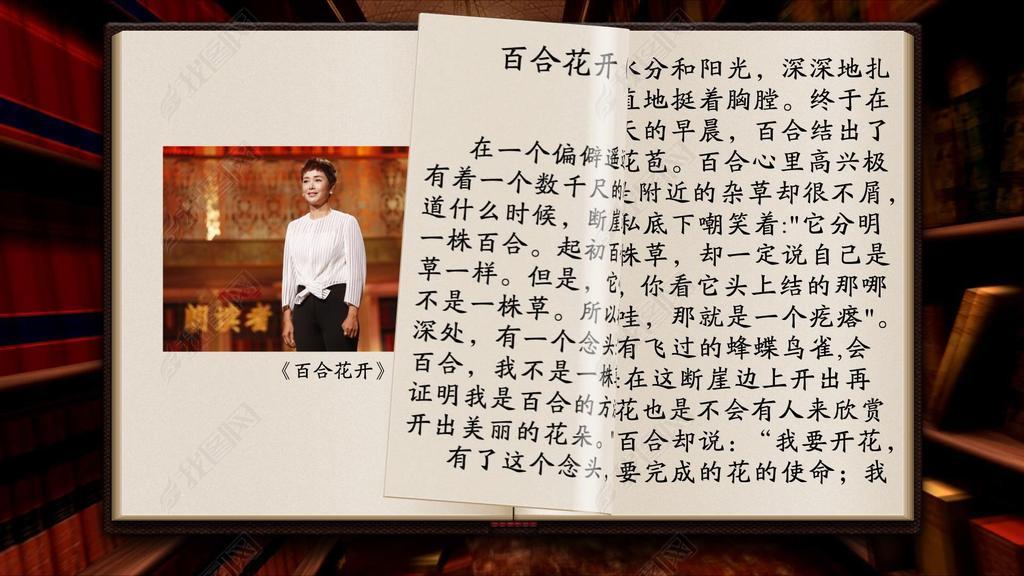 朗读者
《百合花开》
百合花开
在一个偏僻遥
有着一个数千尺的
道什么时候，断崖
一株百合。起初百
草一样。但是，它
不是一株草。所以
深处，有一个念头
百合，我不是一株
证明我是百合的方
开出美丽的花朵。"
有了这个念头，
水分和阳光，深深地扎
直地挺着胸膛。终于在
天的早晨，百合结出了
花苞。百合心里高兴极
附近的杂草却很不屑，
私底下嘲笑着："它分明
株草，却一定说自己是
，你看它头上结的那哪
哇，那就是一个疙瘩"。
有飞过的蜂蝶鸟雀,会
在这断崖边上开出再
花也是不会有人来欣赏
百合却说：“我要开花，
要完成的花的使命；我